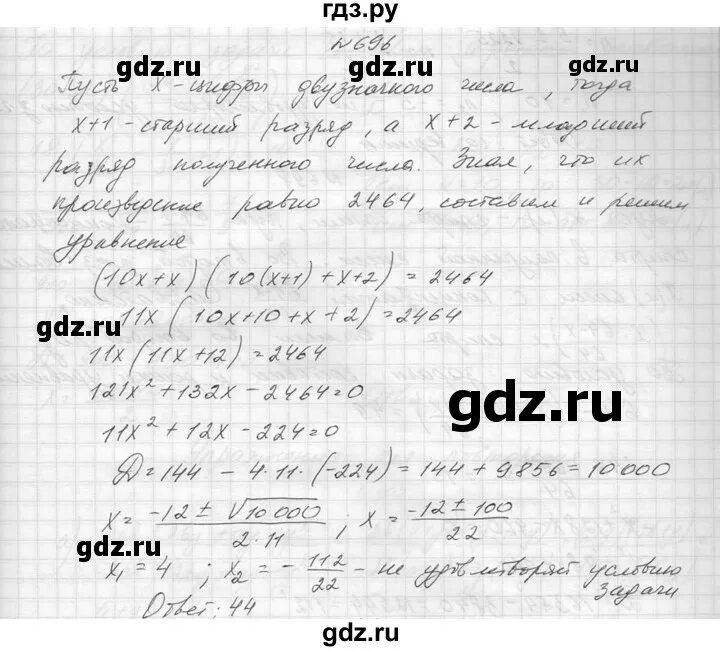 гдз.ру
№696
Пусть x - цифры двузначного числа, тогда
x+1 - старший разряд, а x+2 - младший
разряд полученного числа. Зная, что их
произведение равно 2464, составим и решим
уравнение
(10x+x)(10(x+1)+x+2)=2464
11x(10x+10+x+2)=2464
11x(11x+12)=2464
121x²+132x-2464=0
11x²+12x-224=0
Д=144-4·11·(-224)=144+9856=10000
x=(-12±√10000)/(2·11); x=(-12±100)/22
x₁=4; x₂=-112/22 - не удовлетворяет условию
задачи
Ответ: 44
gdz.ru
gdz.ru
gdz.ru
gdz.ru
gdz.ru
gdz.ru
gdz.ru